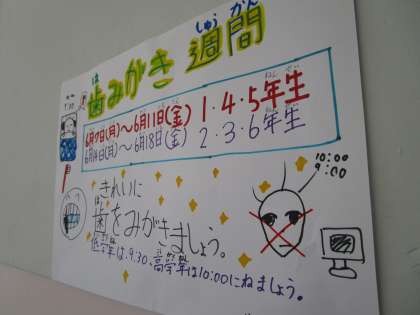 しゅう かん
は
歯みがき週間
7:30
6月7日(月)～6月11日(金) 1・4・5年生
6月14日(月)～6月18日(金) 2・3・6年生
10:00
9:00
きれいに
歯をみがきましょう。
低学年は、9:30、高学年は10:00にねましょう。